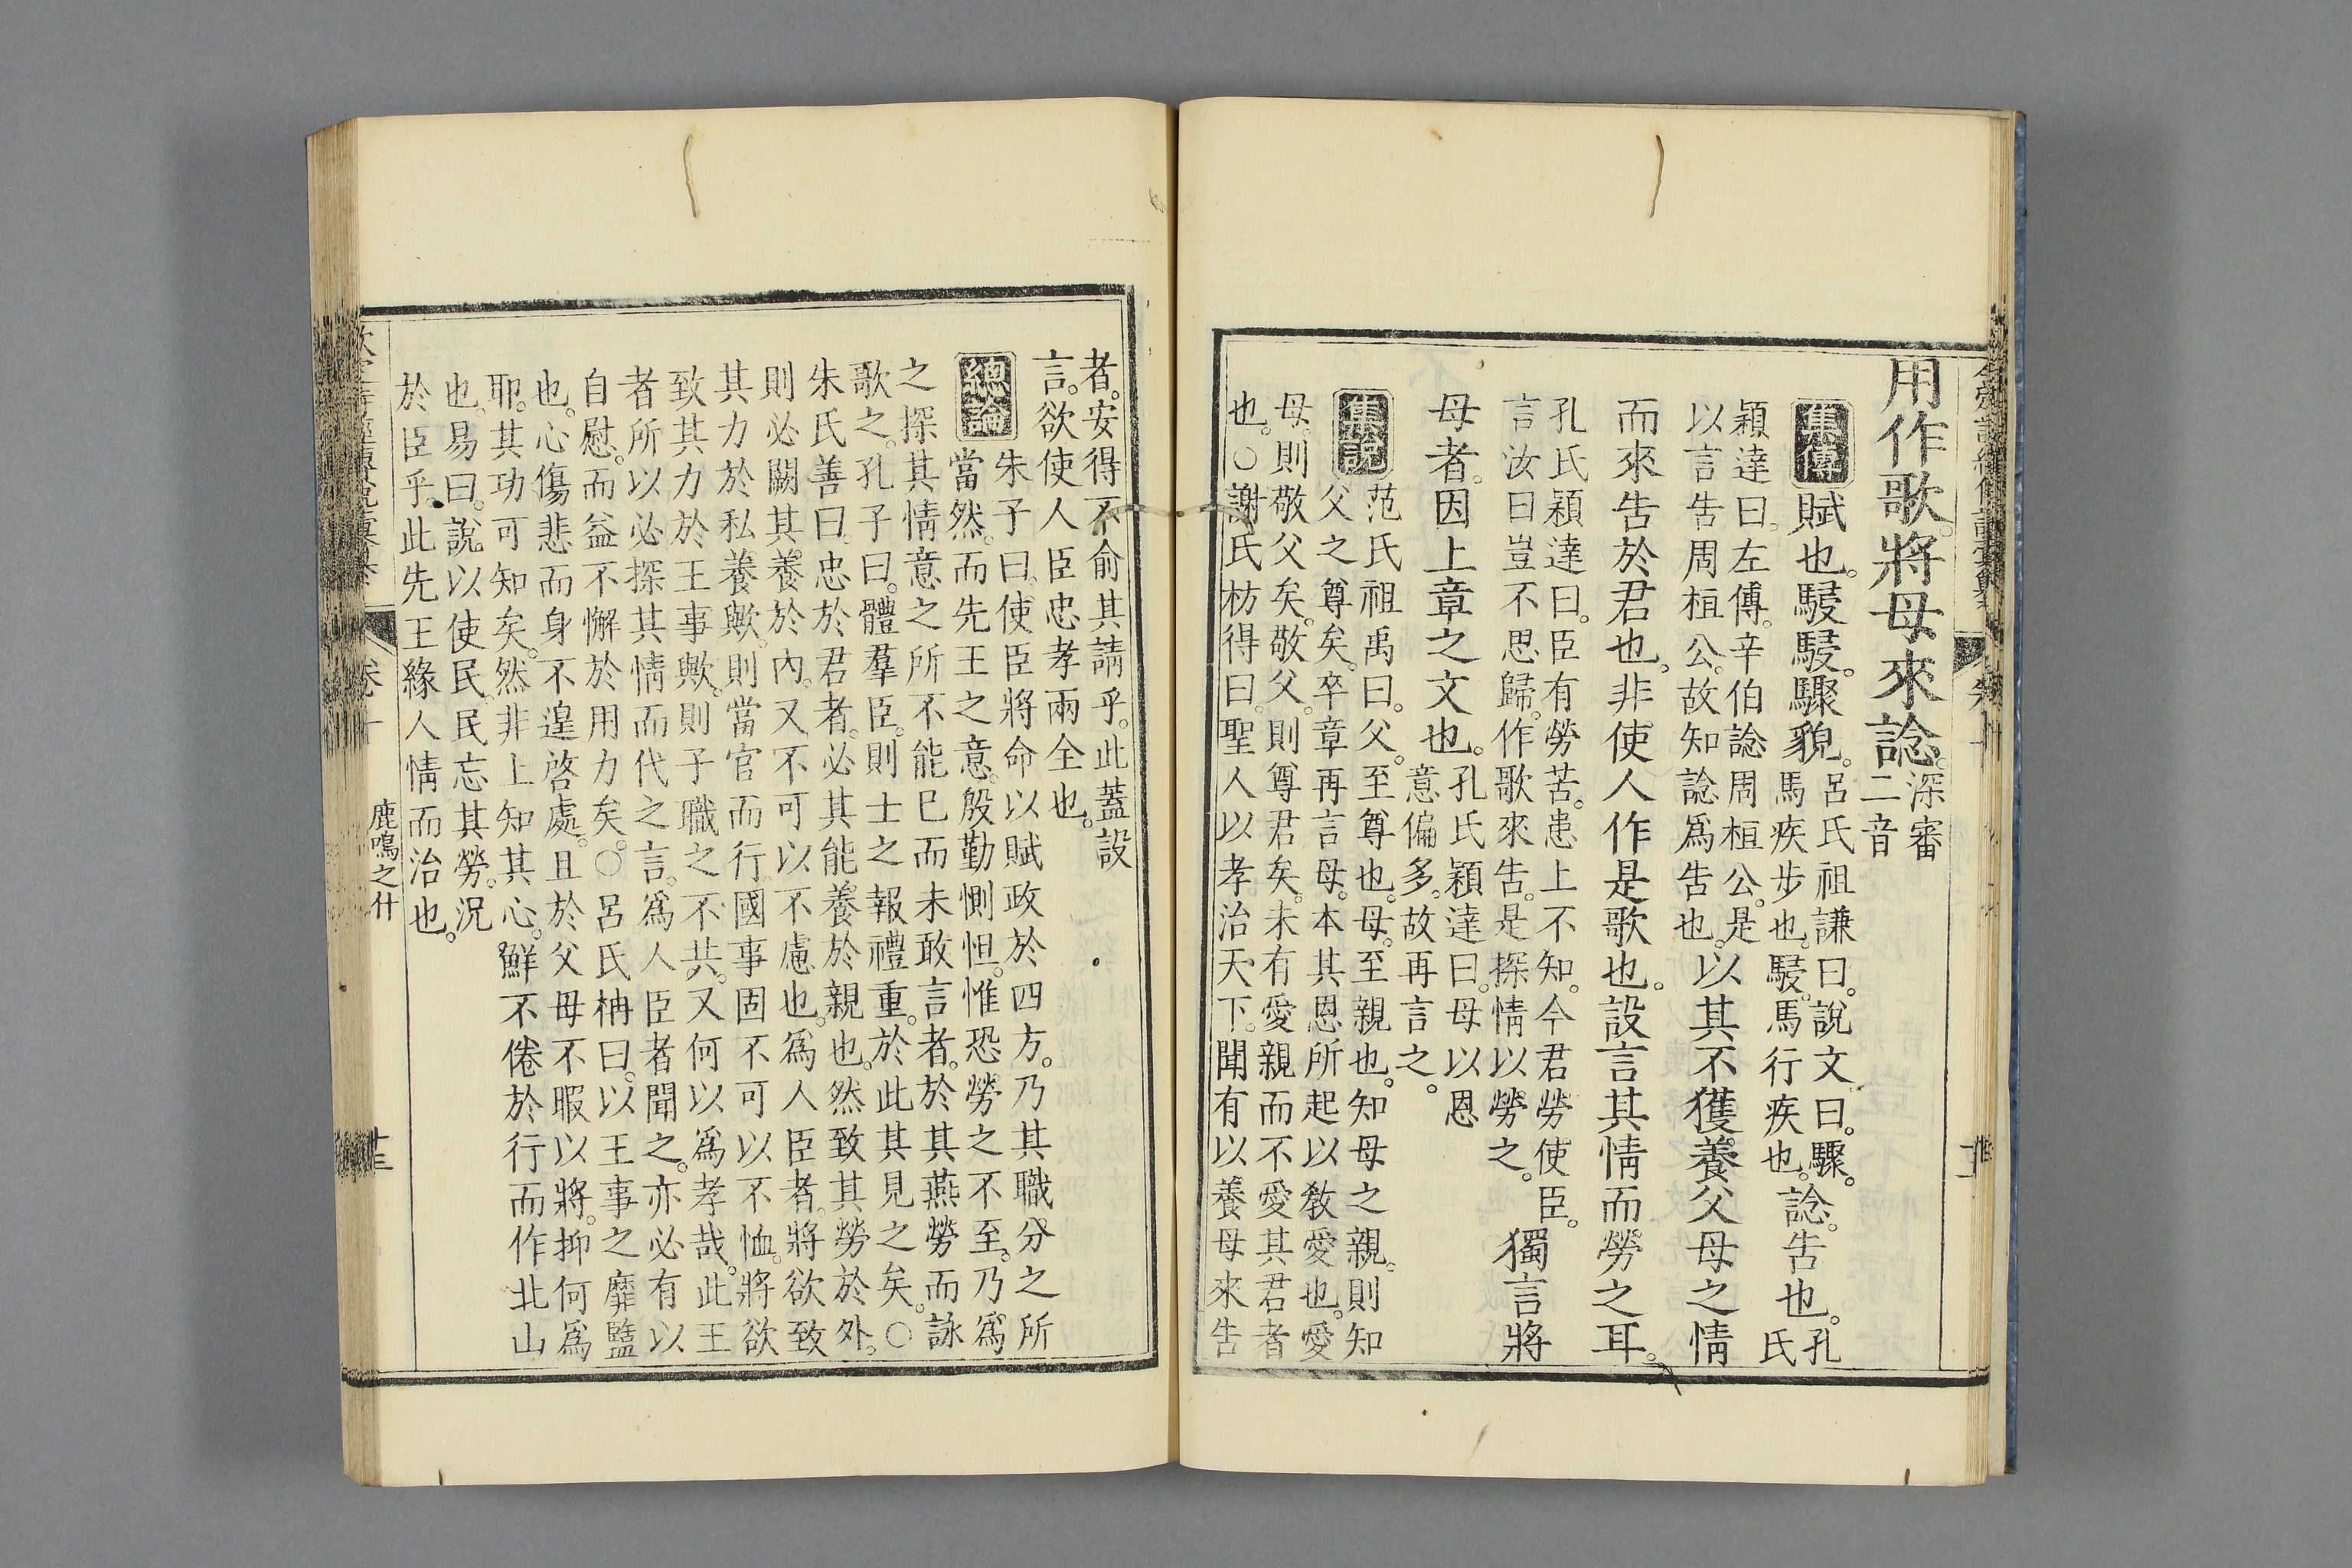 用作歌。將母來諗。深審
二音
集傳
賦也。駸駸。驟貌。呂氏祖謙曰。說文曰。驟。
馬疾步也。駸。馬行疾也。諗。告也。孔
氏
穎達曰。左傳。辛伯諗周桓公。是
以言告周桓公。故知諗爲告也。以其不獲養父母之情
而來告於君也。非使人作是歌也。設言其情而勞之耳。
孔氏穎達曰。臣有勞苦。患上不知。今君勞使臣。
言汝曰豈不思歸。作歌來告。是探情以勞之。獨言將
母者。因上章之文也。孔氏穎達曰。母以恩
意偏多。故再言之。
集說
范氏祖禹曰。父。至尊也。母。至親也。知母之親。則知
父之尊矣。卒章再言母。本其恩所起以敎愛也。愛
母。則敬父矣。敬父。則尊君矣。未有愛親而不愛其君者
也。○謝氏枋得曰。聖人以孝治天下。聞有以養母來告
者。安得不俞其請乎。此蓋設
言。欲使人臣忠孝兩全也。
總論
朱子曰。使臣將命以賦政於四方。乃其職分之所
當然。而先王之意。殷勤惻怛。惟恐勞之不至。乃爲
之探其情意之所不能已而未敢言者。於其燕勞而詠
歌之。孔子曰。體羣臣。則士之報禮重。於此其見之矣。○
朱氏善曰。忠於君者。必其能養於親也。然致其勞於外。
則必闕其養於內。又不可以不慮也。爲人臣者。將欲致
其力於私養歟。則當官而行。國事固不可以不恤。將欲
致其力於王事歟。則子職之不共。又何以爲孝哉。此王
者所以必探其情而代之言。爲人臣者聞之。亦必有以
自慰。而益不懈於用力矣。○呂氏柟曰。以王事之靡盬
也。心傷悲而身不遑啓處。且於父母不暇以將。抑何爲
耶。其功可知矣。然非上知其心。鮮不倦於行而作北山
也。易曰。說以使民。民忘其勞。況
於臣乎。此先王緣人情而治也。
卷十
鹿鳴之什
十三